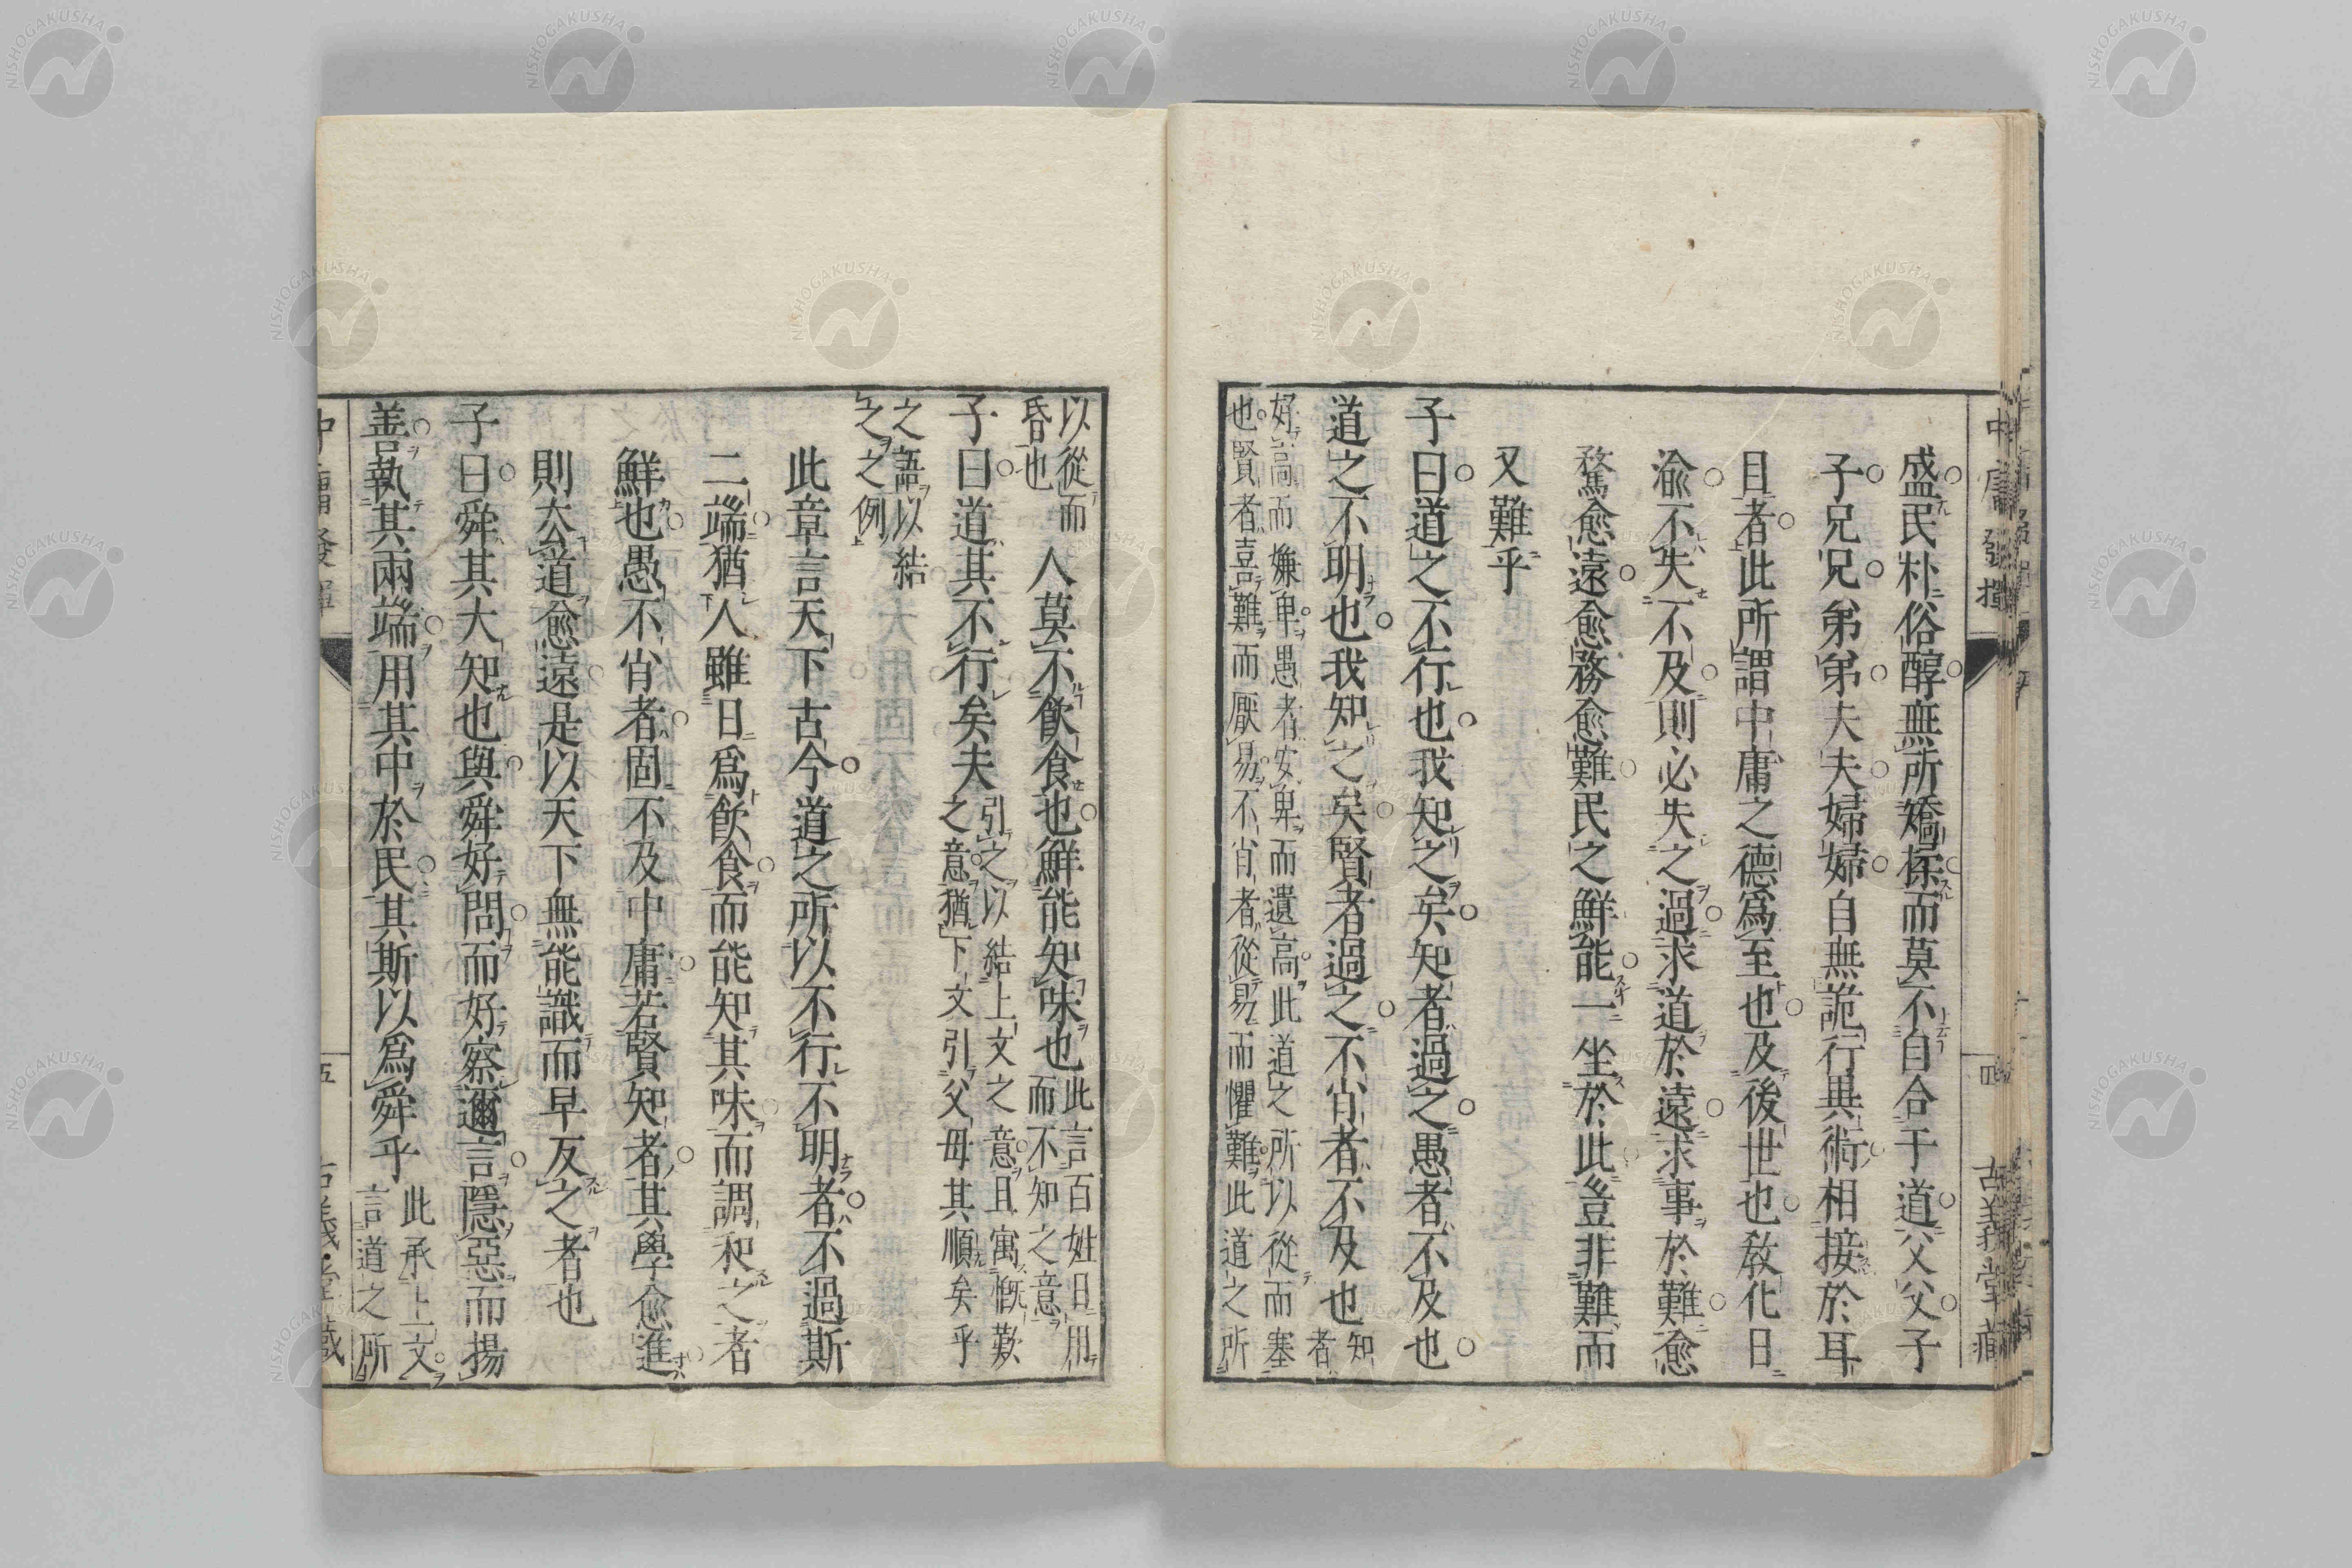 盛民朴俗醇無所矯揉而莫不自合于道父父子
子兄兄弟弟夫夫婦婦自無詭行異術相接於耳
目者此所謂中庸之德爲至也及後世也敎化日
渝不失不及則必失之過求道於遠求事於難愈
騖愈遠愈務愈難民之鮮能一坐於此豈非難而
又難乎
子曰道之不行也我知之矣知者過之愚者不及也
道之不明也我知之矣賢者過之不肖者不及也知
者
好高而嫌卑愚者安卑而遺高此道之所以從而塞
也賢者喜難而厭易不肖者從易而懼難此道之所
中庸發揮
四
古義堂藏
以從而
昏也
人莫不飮食也鮮能知味也此言百姓日用
而不知之意
子曰道其不行矣夫引之以結上文之意且寓慨歎
之意猶下文引父母其順矣乎
之語以結
之之例
此章言天下古今道之所以不行不明者不過斯
二端猶人雖日爲飮食而能知其味而調和之者
鮮也愚不肖者固不及中庸若賢知者其學愈進
則去道愈遠是以天下無能識而早反之者也
子曰舜其大知也與舜好問而好察邇言隱惡而揚
善執其兩端用其中於民其斯以爲舜乎此承上文
言道之所
五